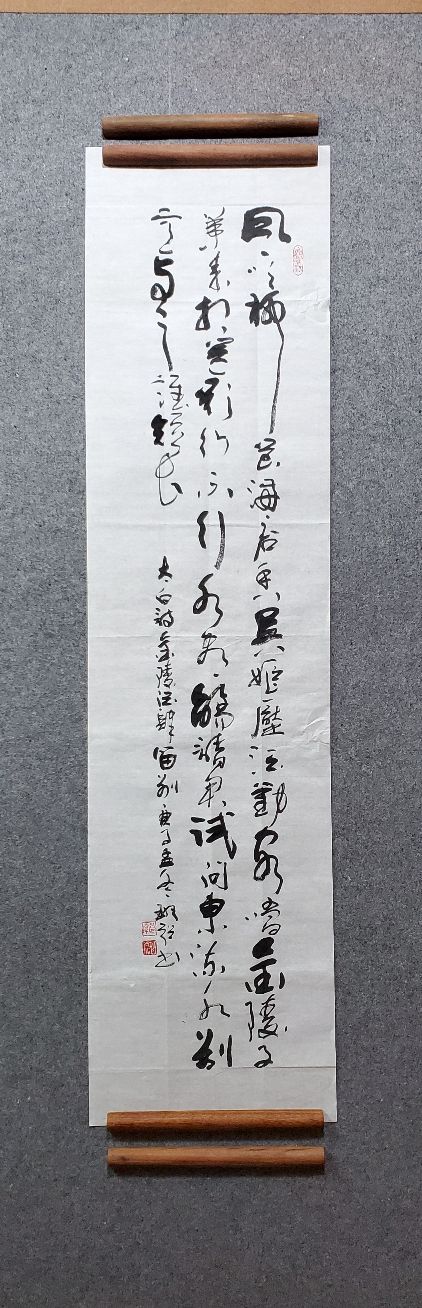 風吹柳花滿店香吳姬壓酒勸客嘗金陵子
弟來相送欲行不行各盡觴請君試問東流水別
意與之誰短長
太白詩金陵酒肆留別庚子孟冬書